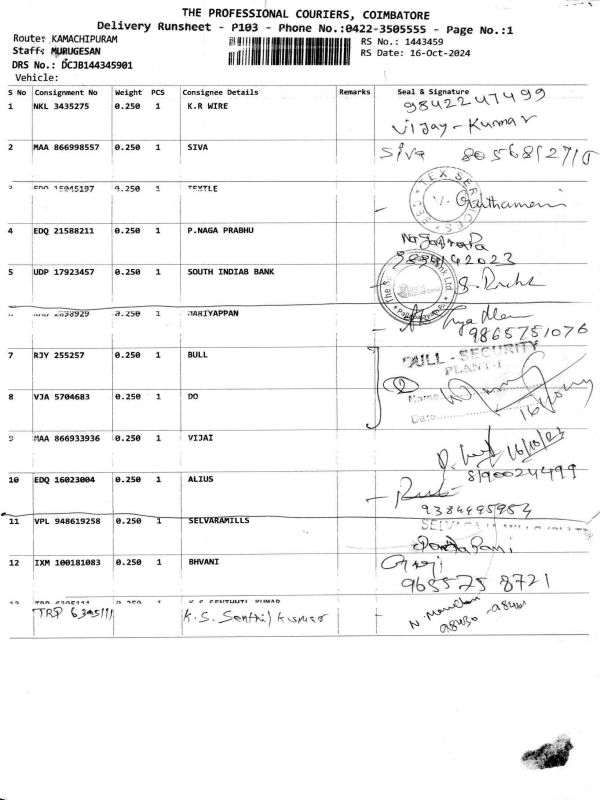 THE PROFESSIONAL COURIERS, COIMBATORE
Delivery Runsheet - P103 - Phone No.:0422-3505555 - Page No.:1
Route: KAMACHIPURAM
RS No.: 1443459
Staff: MURUGESAN
RS Date: 16-Oct-2024
DRS No.: DCJB144345901
Vehicle:
S No Consignment No Weight PCS Consignee Details Remarks Seal & Signature
1 NKL 3435275 0.250 1 K.R WIRE 9842247499
Vijay-Kumar
2 MAA 866998557 0.250 1 SIVA Siva
15045197 0.250 1 TEXTLE
TEX SERVICES
4 EDQ 21588211 0.250 1 P.NAGA PRABHU
5 UDP 17923457 0.250 1 SOUTH INDIAB BANK
0.250 1 MARIYAPPAN
9865751076
7 RJY 255257 0.250 1 BULL BULL - SECURITY
PLANT-I
8 VJA 5704683 0.250 1 DO 2 Name
Date
9 MAA 866933936 0.250 1 VIJAI 16/10/24
8190024499
10 EDQ 16023004 0.250 1 ALIUS
9384495954
11 VPL 948619258 0.250 1 SELVARAMILLS
12 IXM 100181083 0.250 1 BHVANI
965575 8721
13 TRP 6395111 0.250 1 K S SENTHIL KUMAR
TRP 6395111 K.S. Senthil Kumar